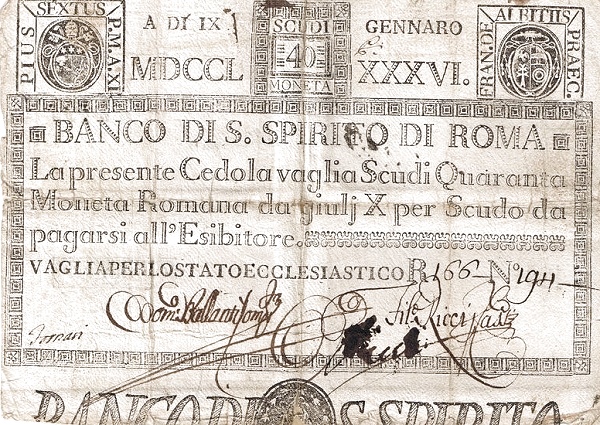 PIUS SEXTUS P.M.A.XI
A DÌ IX GENNARO
SCUDI 40 MONETA
MDCCL XXXVI.
FRAN.DE ALBITIIS PRAEC.
BANCO DI S. SPIRITO DI ROMA
La presente Cedola vaglia Scudi Quaranta
Moneta Romana da giulj X per Scudo da
pagarsi all'Esibitore.
VAGLIA PER LO STATO ECCLESIASTICO R 166 N.º 194
BANCO DI S. SPIRITO